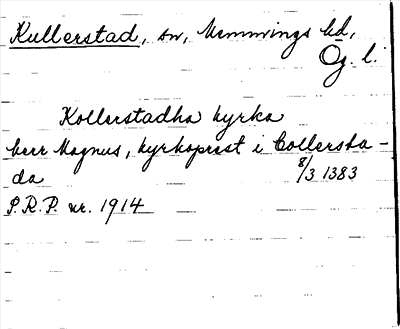 Kullerstad, sn, Memmings hd,
Ög. l.
Kollerstadha kyrka
herr Magnus, kyrkoprest i Collersta-
da 8/3 1383
S.R.P. nr. 1914